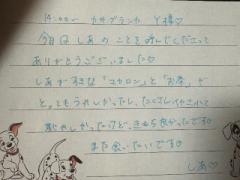 14:00〜 カサブランカ Y様♡
今日は しあ のことを 呼んでくださって
ありがとうございました♡
しあが好きな「マカロン」と「お茶」が
とってもうれしかったし、たくさんイヤされて
恥ずかしかったけど、きもち良かったです♡
また会いたいです♡
しあ♡